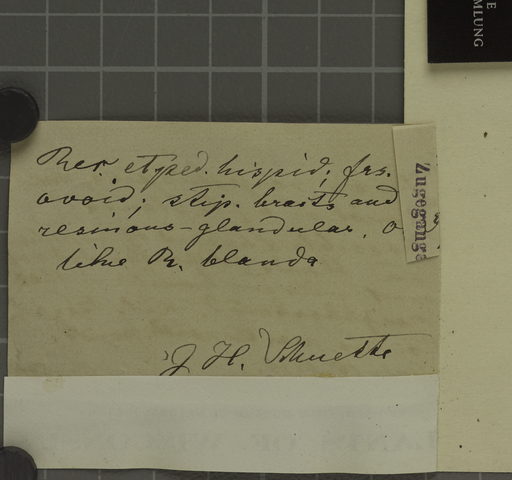 Rec. et ped. hispid; frs.
ovoid; stip. bracts and
resinous-glandular. O
like R. blanda
J. H. Schuette
Zugegange
E
MLUNG